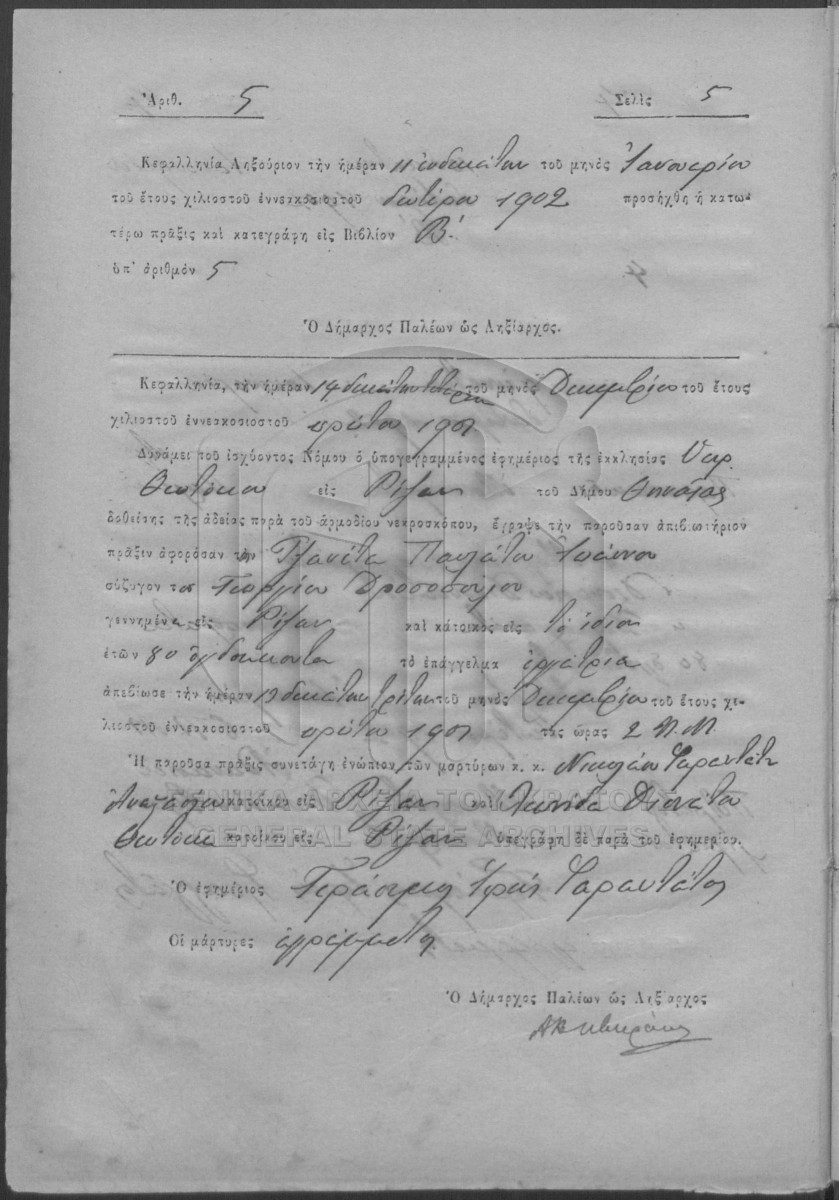 Ἀριθ. 5 Σελὶς 5
Κεφαλληνία Ληξούριον τὴν ἡμέραν 11 ἑνδεκάτην τοῦ μηνὸς Ἰανουαρίου
τοῦ ἔτους χιλιοστοῦ ἐννεακοσιοστοῦ δευτέρου 1902 προσήχθη ἡ κατω-
τέρω πρᾶξις καὶ κατεγράφη εἰς Βιβλίον Β΄.
ὑπ' ἀριθμὸν 5
Ὁ Δήμαρχος Παλέων ὡς Ληξίαρχος.
Κεφαλληνία, τὴν ἡμέραν 14 δεκάτην τετάρτην τοῦ μηνὸς Δεκεμβρίου τοῦ ἔτους
χιλιοστοῦ ἐννεακοσιοστοῦ πρώτου 1901
Δυνάμει τοῦ ἰσχύοντος Νόμου ὁ ὑπογεγραμμένος ἐφημέριος τῆς ἐκκλησίας Ὑπερ.
Θεοτόκου εἰς Ρίζαν τοῦ Δήμου Θηναίας
δοθείσης τῆς ἀδείας παρὰ τοῦ ἁρμοδίου νεκροσκόπου, ἔγραψε τὴν παροῦσαν ἀπιβιωτήριον
πρᾶξιν ἀφορῶσαν τὴν Τζανέτα Παυλάτου Ἰωάννου
σύζυγον του Γεωργίου Δροσοπούλου
γεννημένη εἰς Ρίζαν καὶ κάτοικος εἰς τὸ ἴδιον
ἐτῶν 80 ὀγδοήκοντα τὸ ἐπάγγελμα ἐργάτρια
ἀπεβίωσε τὴν ἡμέραν 13 δεκάτην τρίτην τοῦ μηνὸς Δεκεμβρίου τοῦ ἔτους χι-
λιοστοῦ ἐννεακοσιοστοῦ πρώτου 1901 τὰς ὥρας 2 Π.Μ.
Ἡ παροῦσα πρᾶξις συνετάγη ἐνώπιον τῶν μαρτύρων κ. κ. Νικολάου Ταραντάτου
κατοίκου εἰς Ρίζαν καὶ Λεωνίδα Διονάτου
κατοίκου εἰς Ρίζαν ὑπεγράφη δὲ παρὰ τοῦ ἐφημερίου.
ΓΕΝΙΚΑ ΑΡΧΕΙΑ ΤΟΥ ΚΡΑΤΟΥΣ
GENERAL STATE ARCHIVES
Ὁ ἐφημέριος Γεράσιμος Ἱερεὺς Ταραντάτος
Οἱ μάρτυρες ἀγράμματοι
Ὁ Δήμαρχος Παλέων ὡς Ληξίαρχος